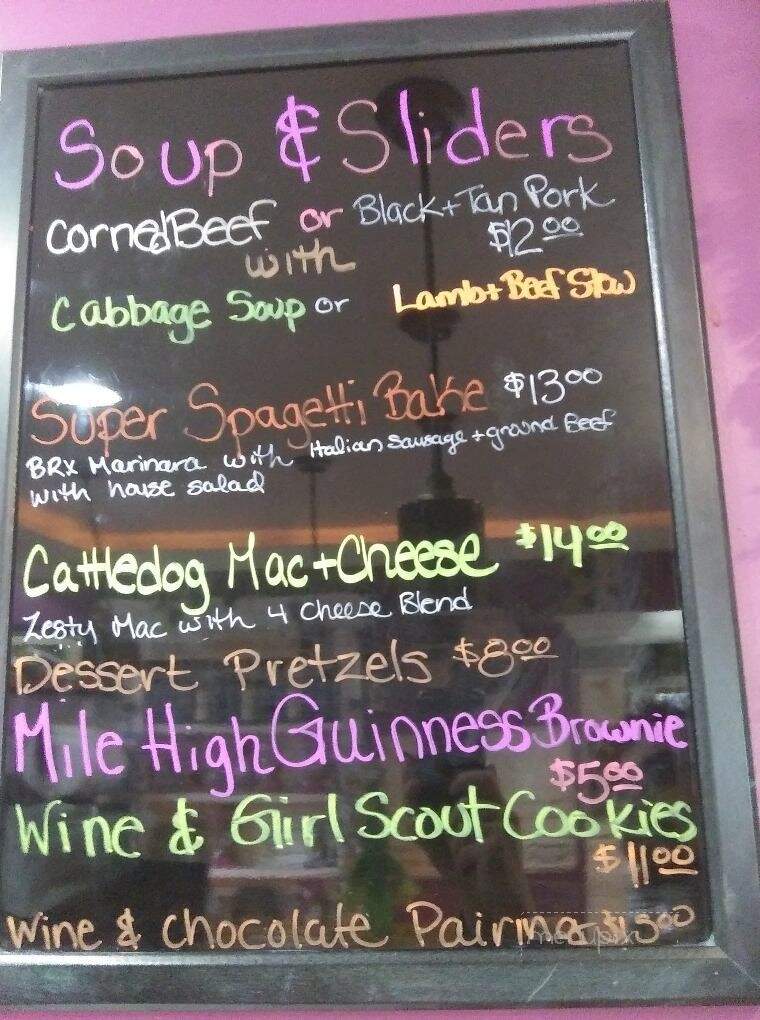 Soup & Sliders
Corned Beef or Black + Tan Pork
$12.00
with
Cabbage Soup or Lamb + Beef Stew
Super Spagetti Bake $13.00
BRX Marinara with Italian Sausage + ground Beef
with house salad
Cattledog Mac + Cheese $14.00
Zesty Mac with 4 Cheese Blend
Dessert Pretzels $8.00
Mile High Guinness Brownie
$5.00
Wine & Girl Scout Cookies
$11.00
Wine & Chocolate Pairing $15.00
menupix